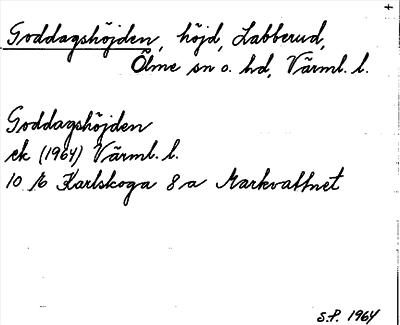 Goddagshöjden, höjd, Labberud,
Ölme sn o. hd, Värml. l.
Goddagshöjden
ek (1964) Värml. l.
10 Karlskoga 8 a Markvattnet
S.P. 1964